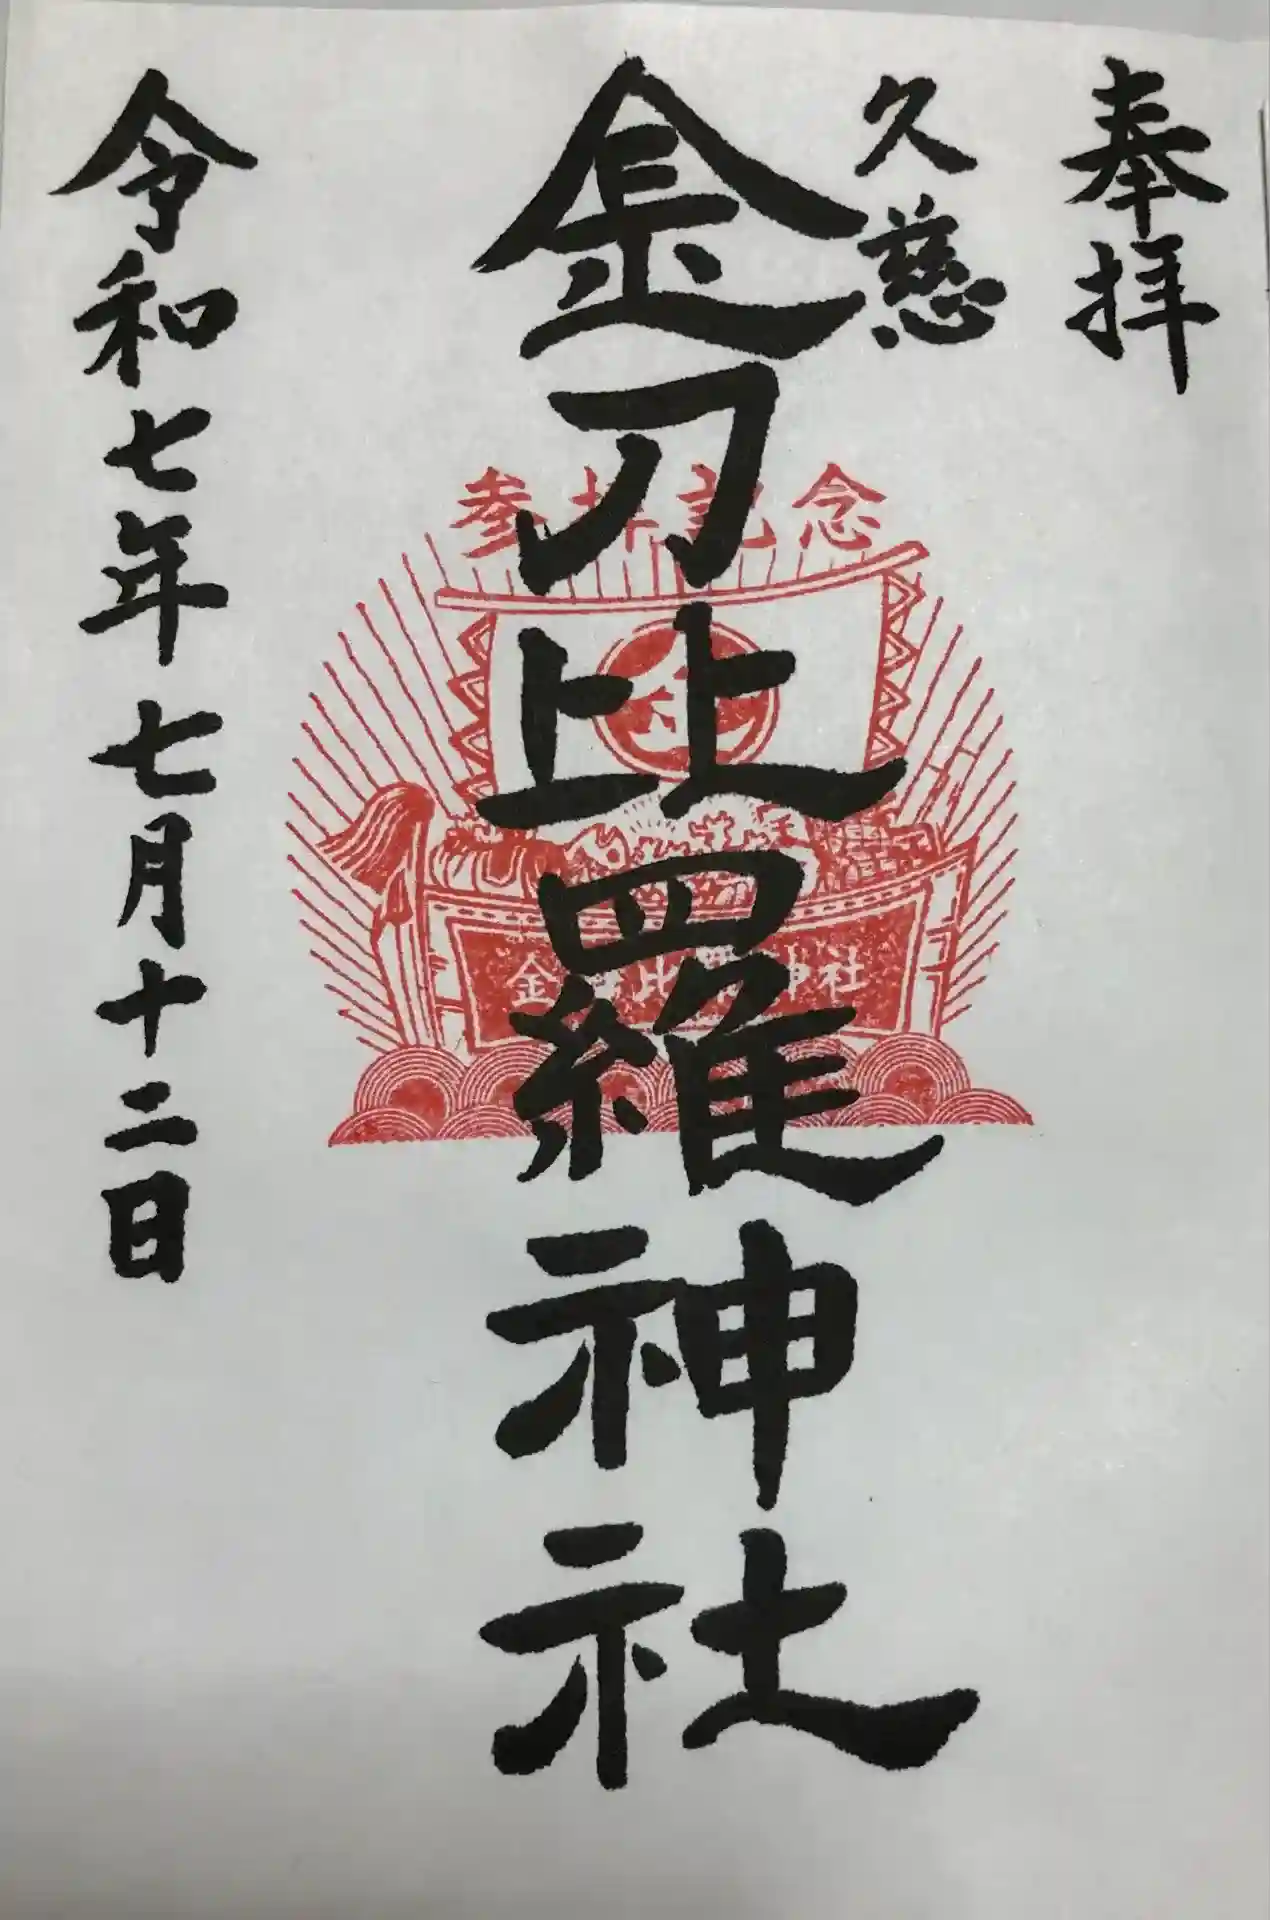 奉拝
久慈
金刀比羅神社
参拝記念
金
金刀比羅神社
令和七年七月十二日